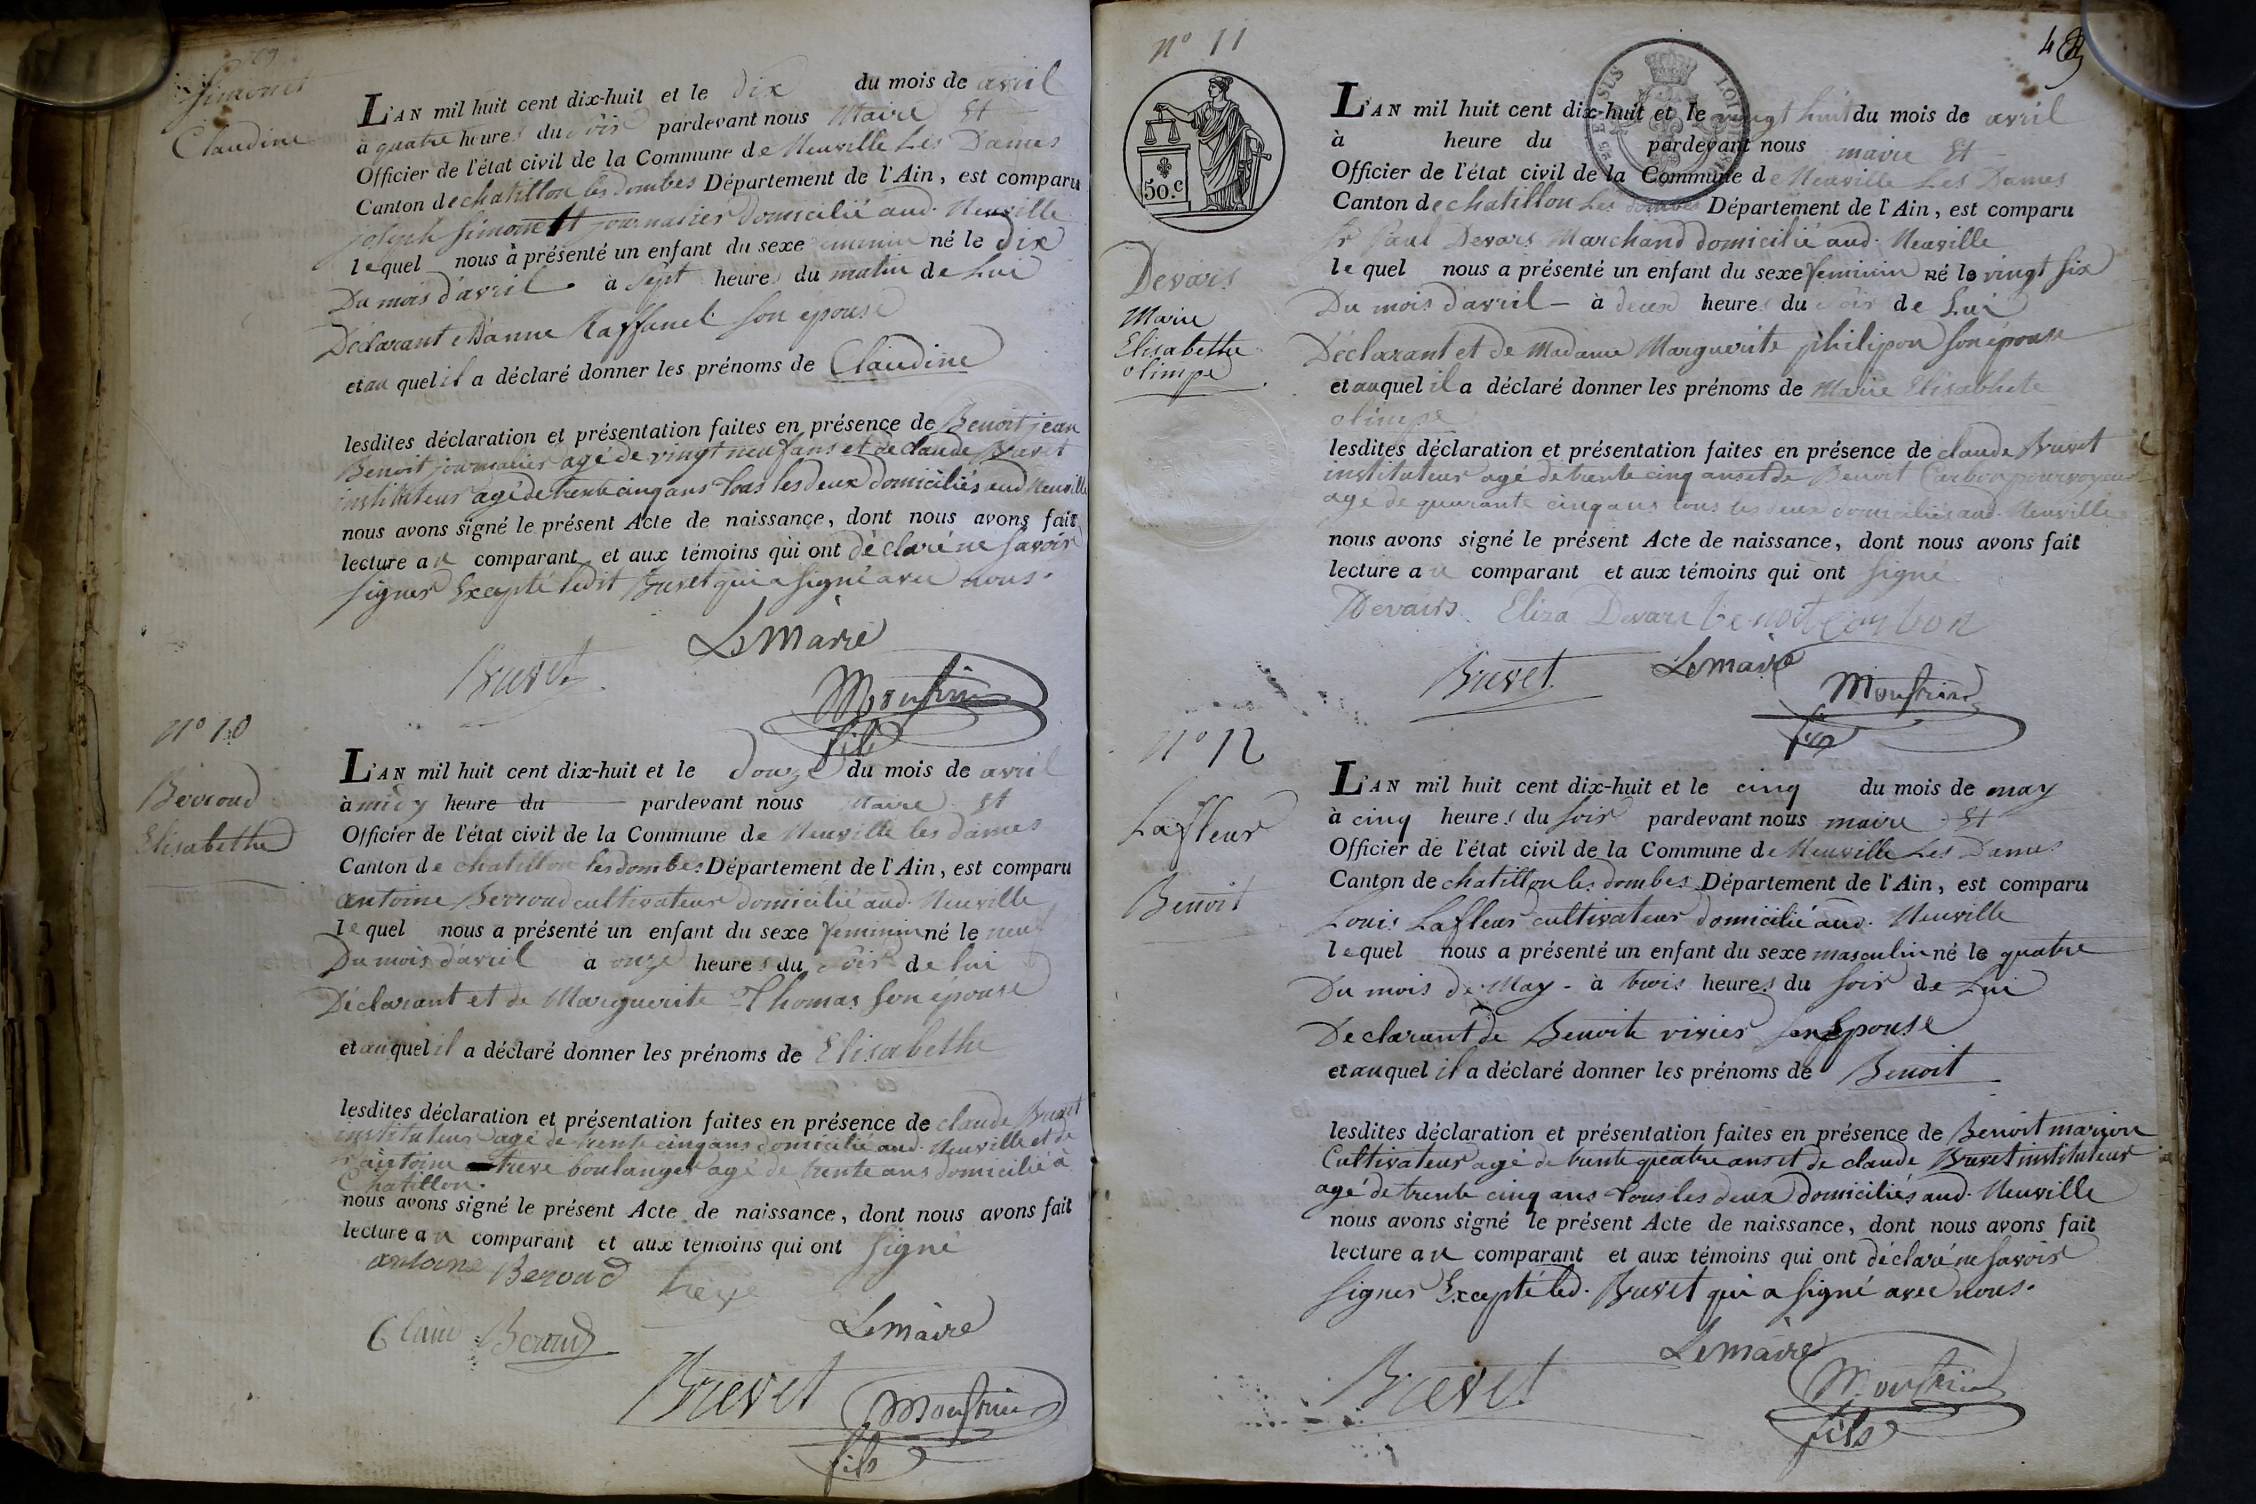 Simonet
Claudine
L'AN mil huit cent dix-huit et le dix du mois de avril
à quatre heures du soir pardevant nous Maire Et
Officier de l'état civil de la Commune de Neuville Les Dames
Canton de chatillon les dombes Département de l'Ain, est comparu
joseph Simonett journalier domicilié aud. Neuville
lequel nous à présenté un enfant du sexe feminin né le dix
Du mois d'avril à sept heures du matin de Lui
Déclarant et Danne Raffanel son epouse
et au quel il a déclaré donner les prénoms de Claudine
lesdites déclaration et présentation faites en présence de Benoit jean
Benoit journalier agé de vingt neuf ans et de claude Brevet
instituteur agé de trente cinq ans tous les deux domiciliés aud Neuville
nous avons signé le présent Acte de naissance, dont nous avons fait
lecture au comparant et aux témoins qui ont déclaré ne savoir
signer Excepté ledit Brevet qui a signé avec nous.
Le Maire
Brevet
fils
N° 10
Berroud
Elisabethe
L'AN mil huit cent dix-huit et le douze du mois de avril
à midy heure du pardevant nous Maire Et
Officier de l'état civil de la Commune de Neuville les dames
Canton de chatillon les dombes Département de l'Ain, est comparu
antoine Berroud cultivateur domicilié aud. Neuville
lequel nous a présenté un enfant du sexe feminin né le neuf
Du mois d'avril à onze heures du soir de lui
Déclarant et de Marguerite Thomas son epouse
et au quel il a déclaré donner les prénoms de Elisabethe
lesdites déclaration et présentation faites en présence de claude Brevet
instituteur agé de trente cinq ans domicilié aud. Neuville et de
antoine treve boulanger agé de trente ans domicilié à
Chatillon.
nous avons signé le présent Acte de naissance, dont nous avons fait
lecture au comparant et aux temoins qui ont signé
antoine Beroud treve
Beroud
Lemaire
Brevet
fils
N° 11
50.c
Devars
Marie
Elisabethe
olimpe
L'AN mil huit cent dix-huit et le vingt huit du mois de avril
à heure du pardevant nous maire Et
Officier de l'état civil de la Commune de Neuville Les Dames
Canton de chatillon Les dombes Département de l'Ain, est comparu
Sr Paul Devars Marchand domicilié aud. Neuville
lequel nous a présenté un enfant du sexe feminin né le vingt six
Du mois d'avril à deux heures du soir de Lui
Déclarant et de Madame Marguerite philipon son épouse
et au quel il a déclaré donner les prénoms de Marie Elisabhete
olimpe
lesdites déclaration et présentation faites en présence de claude Brevet
instituteur agé de trente cinq ans et de Benoit Carbon pourvoyeur
agé de quarante cinq ans tous les deux domiciliés aud. Neuville
nous avons signé le présent Acte de naissance, dont nous avons fait
lecture au comparant et aux témoins qui ont signé
Devars Eliza Devars benoit Carbon
Brevet Lemaire
fils
N° 12
Lafleur
Benoit
L'AN mil huit cent dix-huit et le cinq du mois de may
à cinq heures du soir pardevant nous maire Et
Officier de l'état civil de la Commune de Neuville Les Dames
Canton de chatillon les dombes Département de l'Ain, est comparu
Louis Lafleur cultivateur domicilié aud. Neuville
lequel nous a présenté un enfant du sexe masculin né le quatre
Du mois de May - à trois heures du soir de Lui
Declarant de Benoite vivier son Epouse
et au quel il a déclaré donner les prénoms de Benoit
lesdites déclaration et présentation faites en présence de Benoit marion
Cultivateur agé de trente quatre ans et de claude Brevet instituteur
agé de trente cinq ans tous les deux domiciliés aud. Neuville
nous avons signé le présent Acte de naissance, dont nous avons fait
lecture au comparant et aux témoins qui ont déclaré ne savoir
signer Excepté led. Brevet qui a signé avec nous.
Lemaire
Brevet
fils